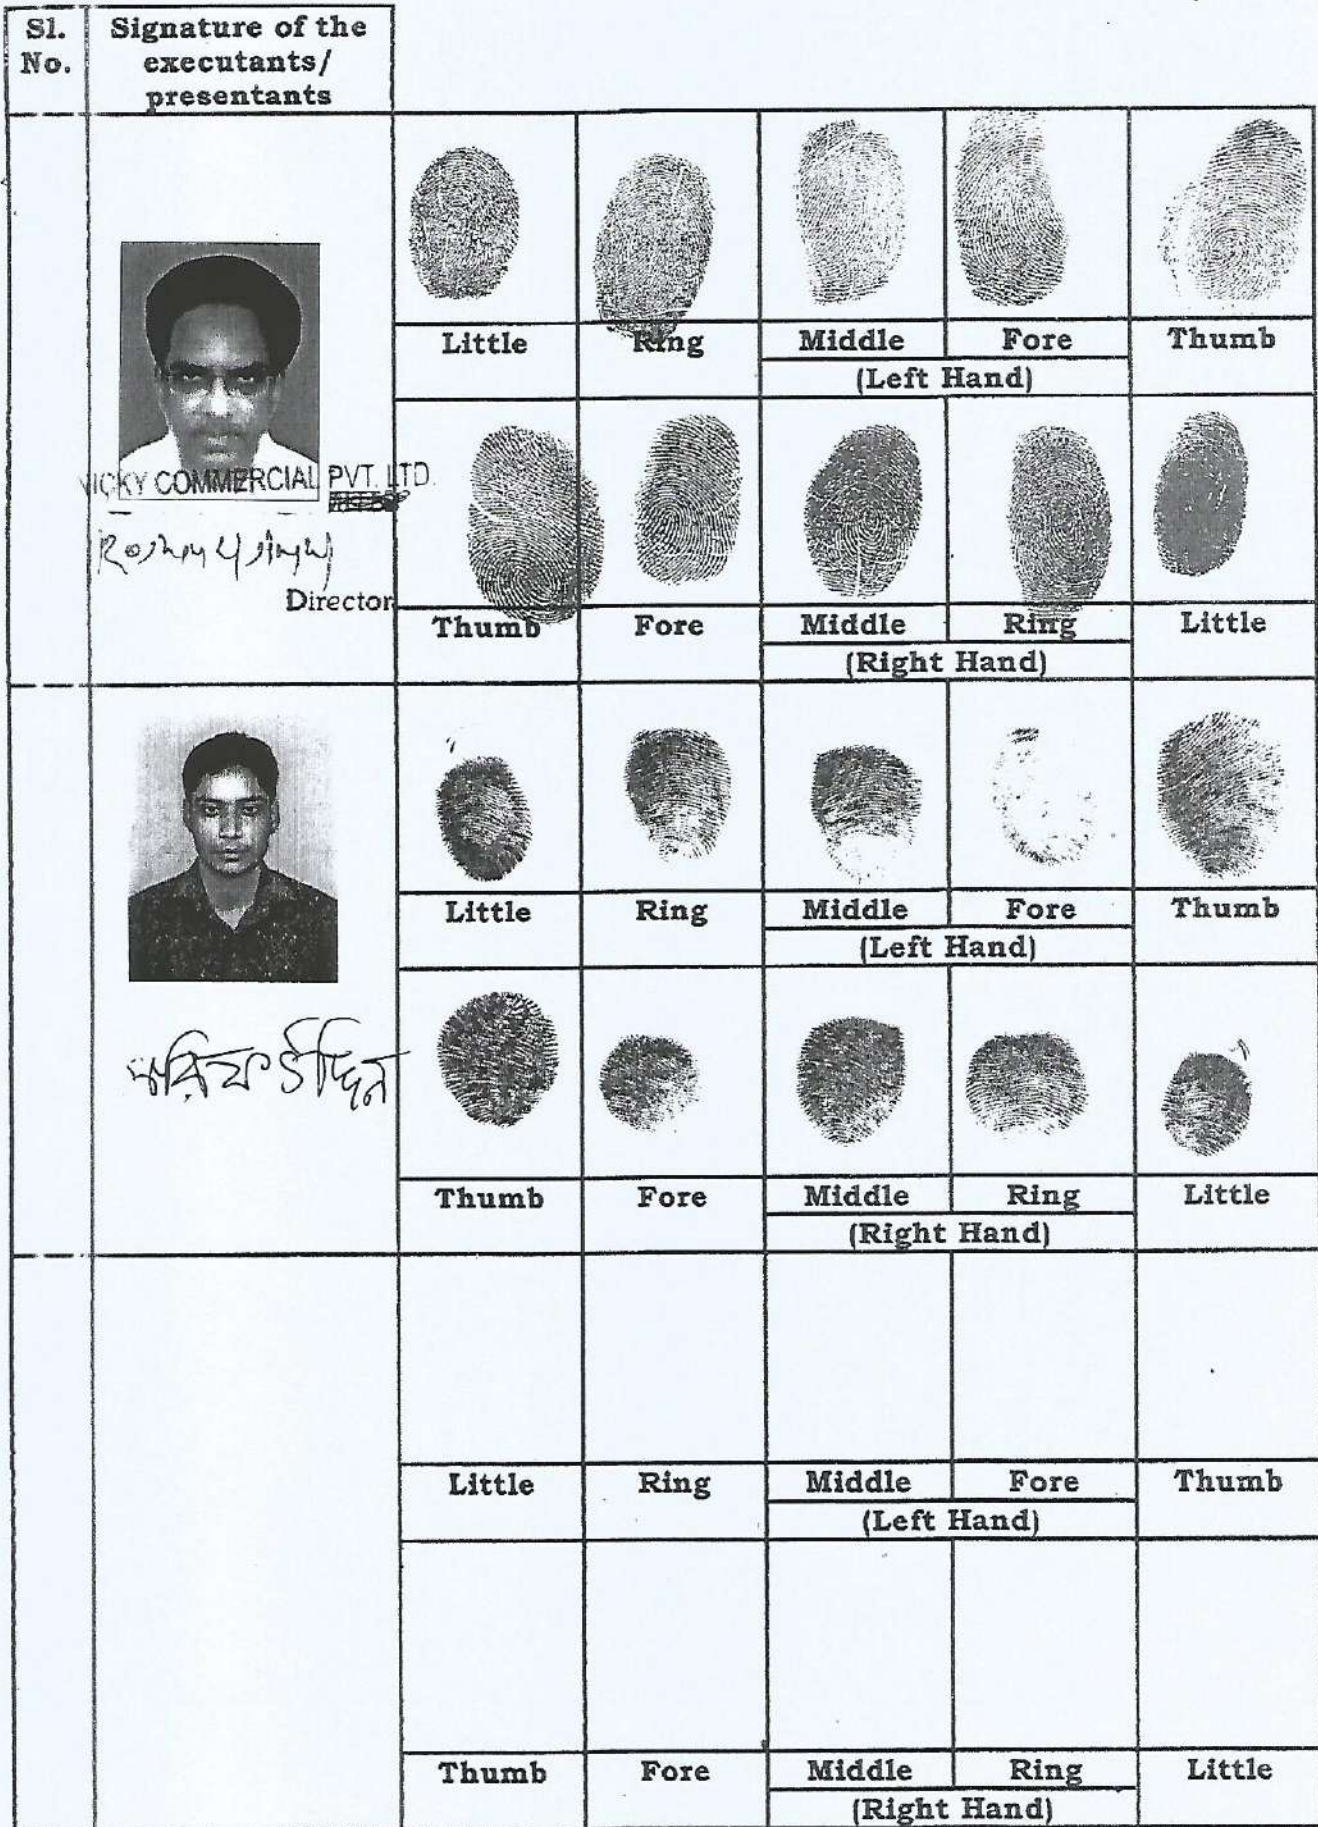 Sl. No.
Signature of the executants/ presentants
Little Ring Middle Fore Thumb
(Left Hand)
VICKY COMMERCIAL PVT. LTD.
Director
Thumb Fore Middle Ring Little
(Right Hand)
Little Ring Middle Fore Thumb
(Left Hand)
উদ্দিন
Thumb Fore Middle Ring Little
(Right Hand)
Little Ring Middle Fore Thumb
(Left Hand)
Thumb Fore Middle Ring Little
(Right Hand)